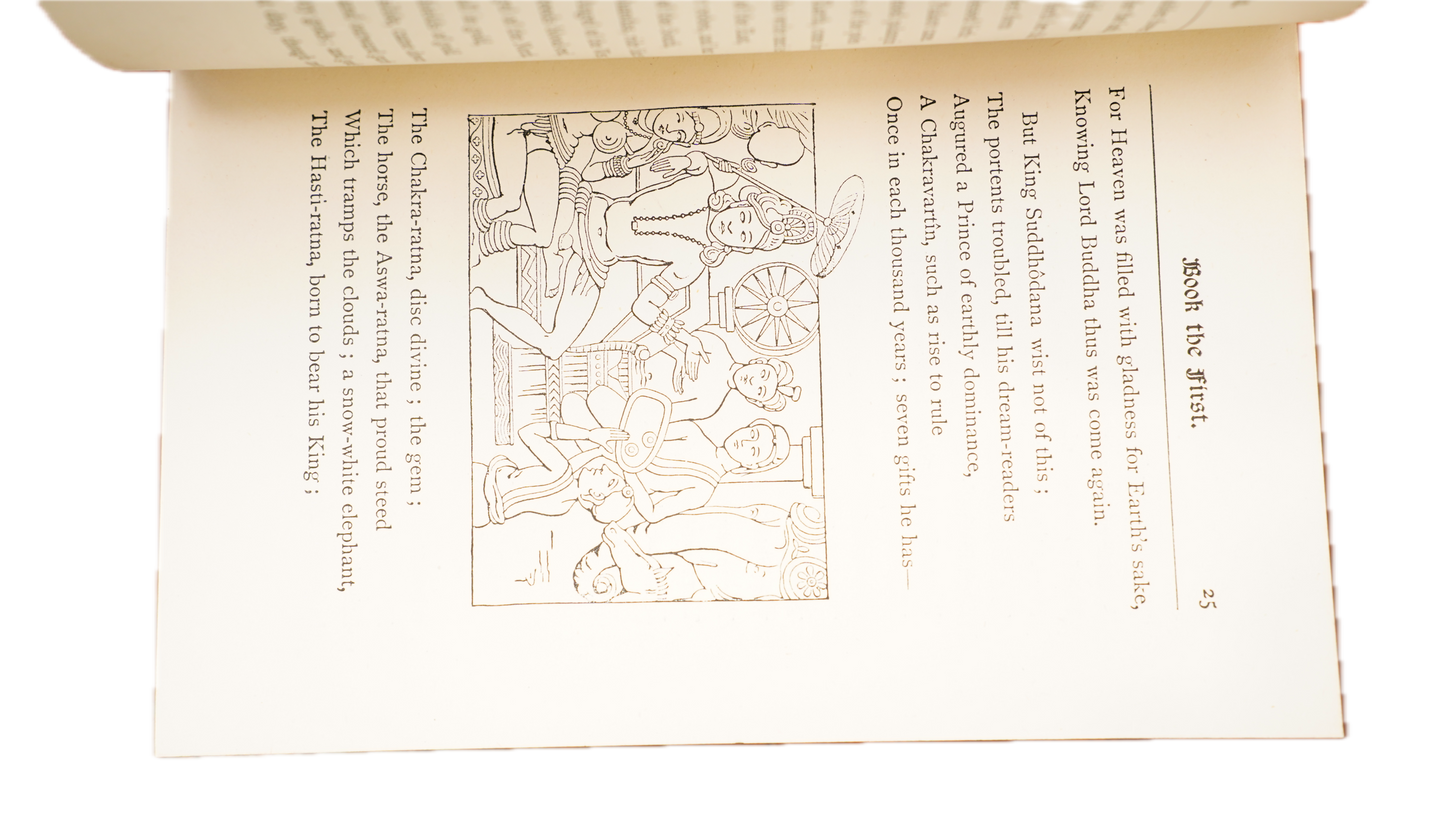 Book the First. 25
For Heaven was filled with gladness for Earth's sake,
Knowing Lord Buddha thus was come again.
But King Suddhôdana wist not of this ;
The portents troubled, till his dream-readers
Augured a Prince of earthly dominance,
A Chakravartîn, such as rise to rule
Once in each thousand years ; seven gifts he has—
The Chakra-ratna, disc divine ; the gem ;
The horse, the Aswa-ratna, that proud steed
Which tramps the clouds ; a snow-white elephant,
The Hasti-ratna, born to bear his King ;